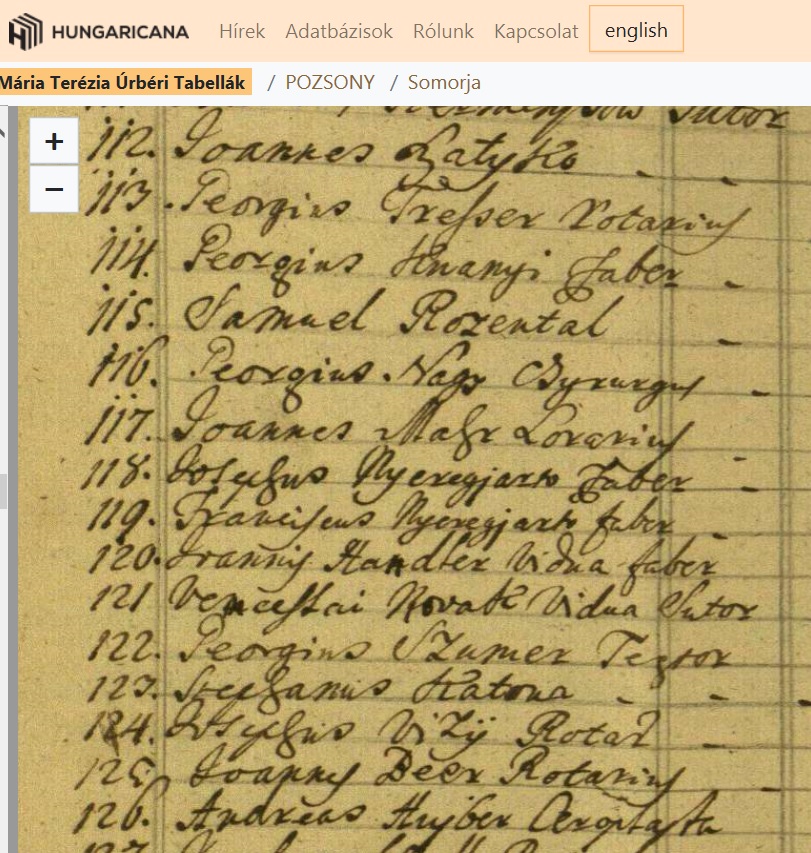 HUNGARICANA Hírek Adatbázisok Rólunk Kapcsolat english
Mária Terézia Úrbéri Tabellák / POZSONY / Somorja
Sutor
+
112. Joannes
−
113. Georgius Tresser Rotarius
114. Georgius Faber
115. Samuel Rozental
116. Georgius Nagy Chyrurgus
117. Joannes Lorarius
118. Josephus Nyeregjarto Faber
119. Franciscus Nyeregjarto faber
120. Joannis Handler Vidua faber
121 Venceslai Novak Vidua Sutor
122. Georgius Szumer Textor
123. Stephanus Katona
124. Josephus Vizÿ Rotar
125. Joannes Beer Rotarius
126. Andreas Hujber
127.